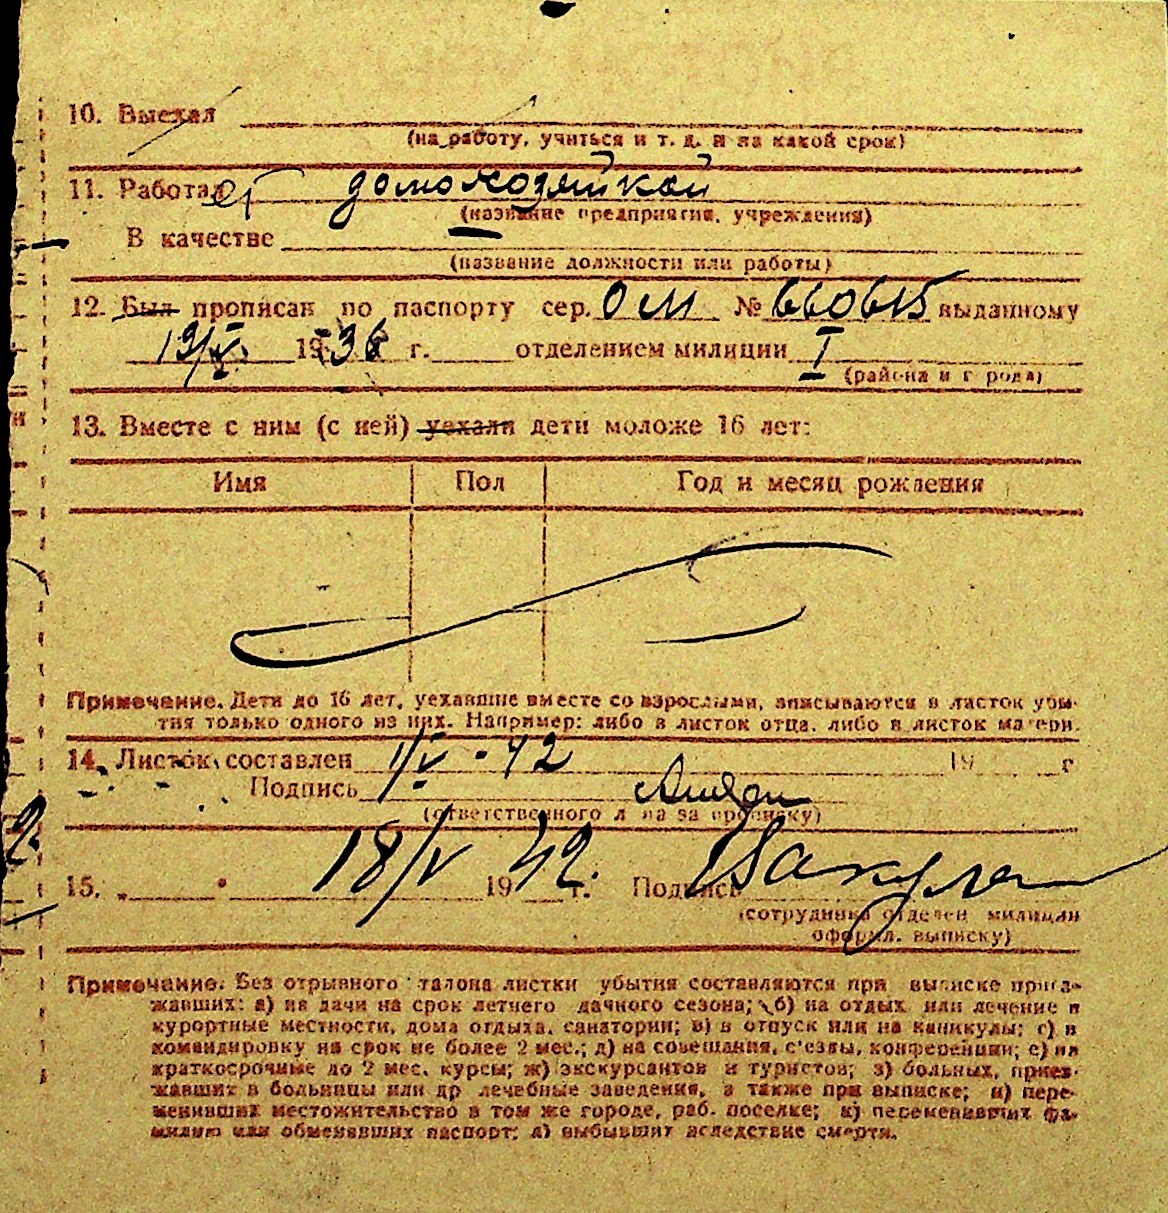 10. Выехал
(на работу, учиться и т. д. и на какой срок)
11. Работает домохозяйкой
(название предприятия, учреждения)
В качестве
(название должности или работы)
12. Был прописан по паспорту сер. ОМ № 660615 выданному
19/V 1936 г. отделением милиции I
(района и города)
13. Вместе с ним (с ней) уехали дети моложе 16 лет:
Имя Пол Год и месяц рождения
Примечание. Дети до 16 лет, уехавшие вместе со взрослыми, вписываются в листок убы-
тия только одного из них. Например: либо в листок отца, либо в листок матери.
14. Листок составлен 1/V-42 19 г
Подпись
(ответственного лица за прописку)
15. „ " 18/V 1942. г. Подпись Вакула
(сотрудника отделен милиции
оформ. выписку)
Примечание. Без отрывного талона листки убытия составляются при выписке приез-
жавших: а) на дачи на срок летнего дачного сезона; б) на отдых или лечение в
курортные местности, дома отдыха, санатории; в) в отпуск или на каникулы; г) в
командировку на срок не более 2 мес.; д) на совещания, с'езды, конференции; е) на
краткосрочные до 2 мес. курсы; ж) экскурсантов и туристов; з) больных, приез-
жавших в больницы или др лечебные заведения, а также при выписке; и) пере-
менивших местожительство в том же городе, раб. поселке; к) переменивших фа-
милию или обменявших паспорт; л) выбывших вследствие смерти.